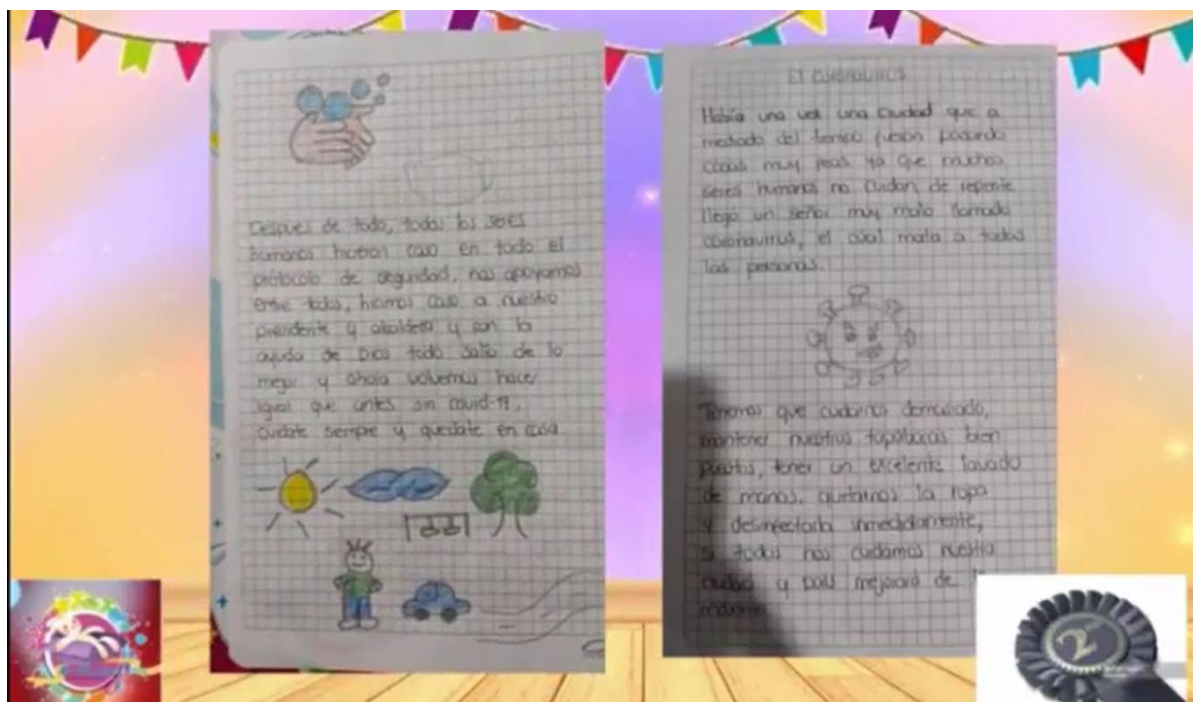 Después de todo, todos los seres
humanos hicieron caso en todo el
protocolo de seguridad, nos apoyamos
entre todos, hicimos caso a nuestro
presidente y alcaldesa y con la
ayuda de Dios todo salio de lo
mejor y ahora volvemos hacer
igual que antes sin covid-19,
cuidate siempre y quedate en casa
El coronavirus
Había una vez una ciudad que a
mediado del tiempo fueron pasando
cosas muy feas ya que muchos
seres humanos no cuidan, de repente
llegó un señor muy malo llamado
coronavirus, el cual mata a todas
las personas.
Tenemos que cuidarnos demasiado,
mantener nuestros tapabocas bien
puestos, tener un excelente lavado
de manos, quitarnos la ropa
y desinfectarla inmediatamente,
si todos nos cuidamos nuestra
ciudad y país mejorará de
2